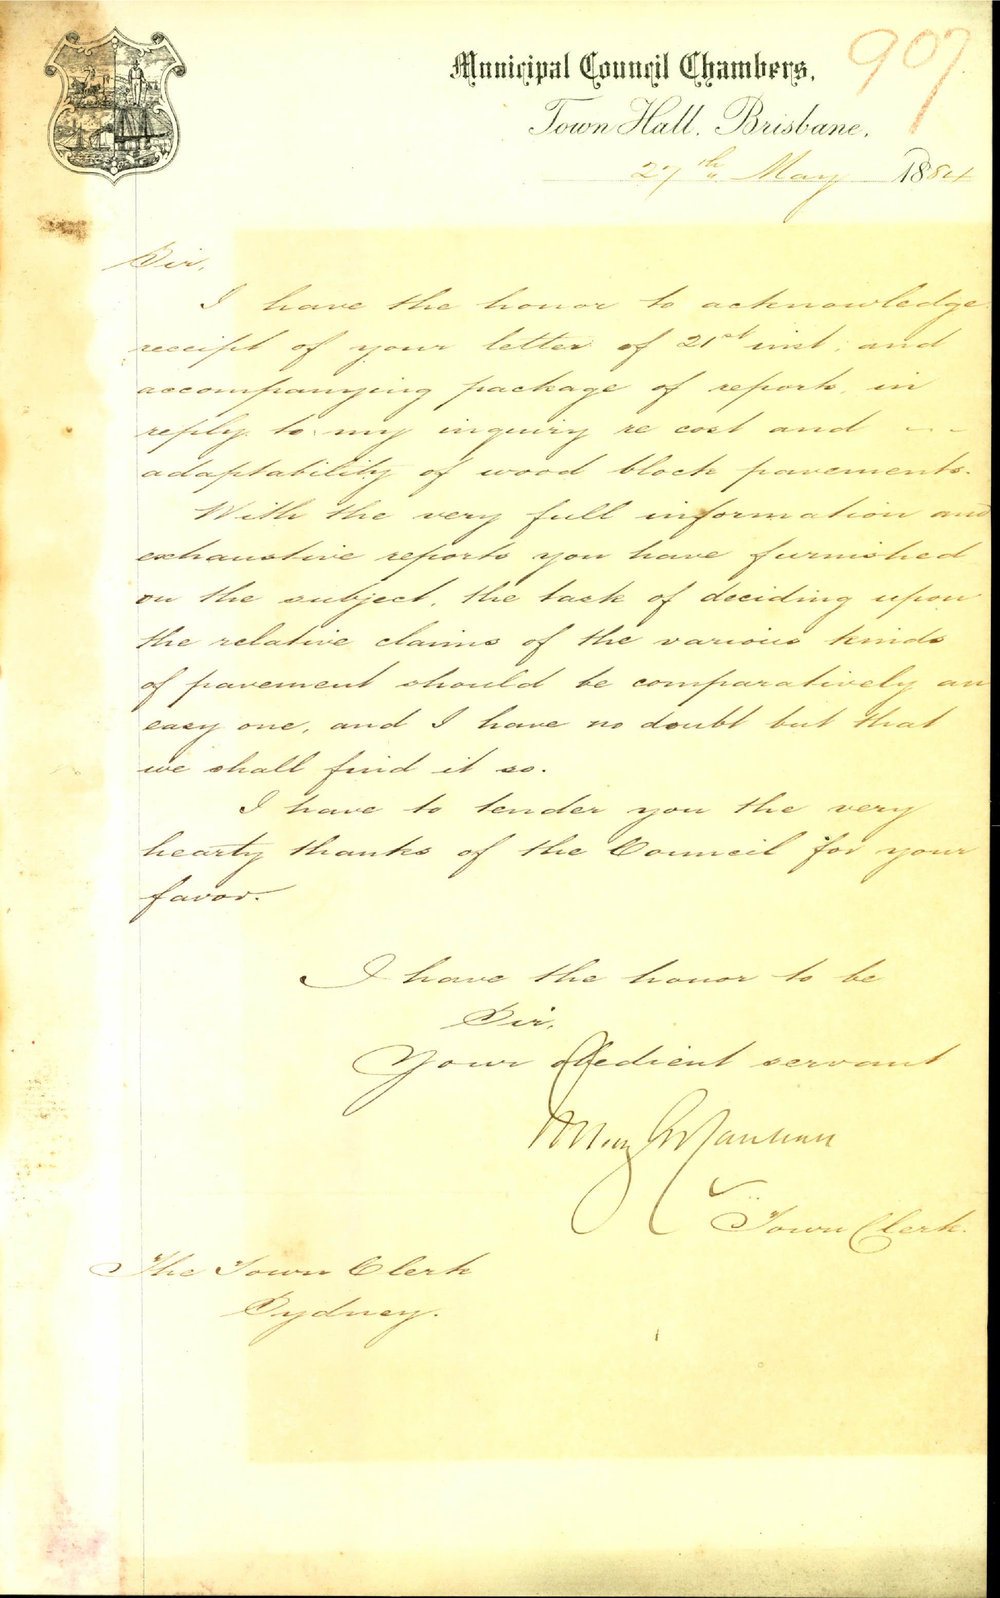 907
Municipal Council Chambers,
Town Hall, Brisbane,
27th May 1884
Sir,
I have the honor to acknowledge
receipt of your letter of 21st inst. and
accompanying package of reports, in
reply to my inquiry re cost and
adaptability of wood block pavements.
With the very full information and
exhaustive reports you have furnished
on the subject, the task of deciding upon
the relative claims of the various kinds
of pavement should be comparatively an
easy one, and I have no doubt but that
we shall find it so.
I have to tender you the very
hearty thanks of the Council for your
favor.
I have the honor to be
Sir,
Your obedient servant
Town Clerk.
The Town Clerk
Sydney.